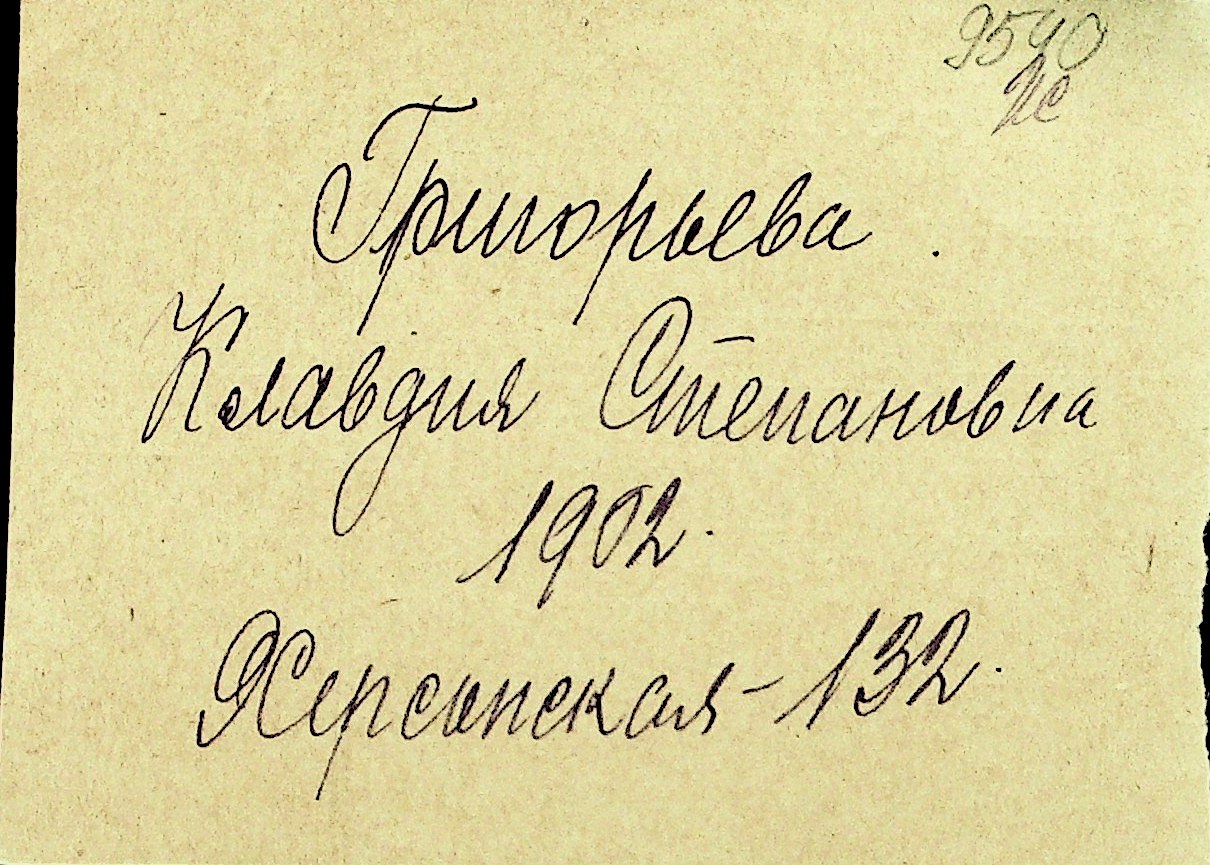 9540
Григорьева.
Клавдия Степановна
1902.
Херсонская - 132.